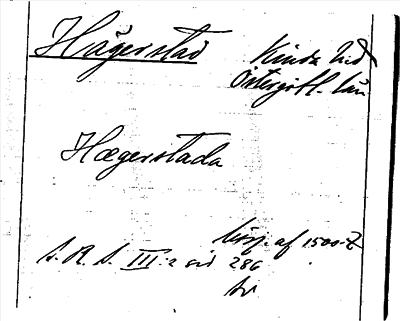 Hägerstad
Kinda hd
Östergötl. län.
Hægerstada
början af 1500-t
S. R. S. III:2 sid 286